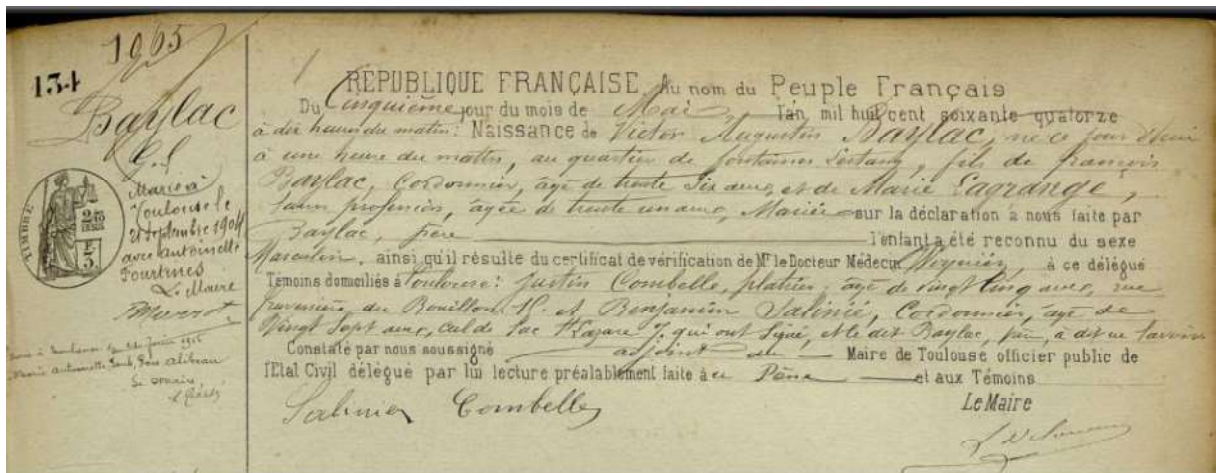 1065
134
Baylac
G. L
TIMBRE
Marié à
Toulouse le
21 septembre 1904
avec antoinette
Fourtines
Le Maire
REPUBLIQUE FRANÇAISE Au nom du Peuple Français
Du Cinquième jour du mois de Mai l'an mil huit cent soixante quatorze
à dix heures du matin: Naissance de Victor Augustin Baylac, né ce jour d'hui
à une heure du matin, au quartier de fontaines Lestang, fils de françois
Baylac, Cordonnier, âgé de trente six ans, et de Marie Lagrange,
sans profession, âgée de trente un ans, Mariés sur la déclaration à nous faite par
Baylac, père l'enfant a été reconnu du sexe
Masculin, ainsi qu'il résulte du certificat de vérification de Mr le Docteur Médecin à ce délégué
Témoins domiciliés à Toulouse: Justin Combelle, platrier, âgé de vingt cinq ans, rue
Traversière du Bouillon 15. et Benjamin Salinié, Cordonnier, âgé de
Vingt Sept ans, cul de sac St Lazare 7. qui ont signé, et le dit Baylac, père, a dit ne savoir
Constaté par nous soussigné adjoint au Maire de Toulouse officier public de
l'Etat Civil délégué par lui lecture préalablement faite à ce Père et aux Témoins
Le Maire
Salinier Combelles